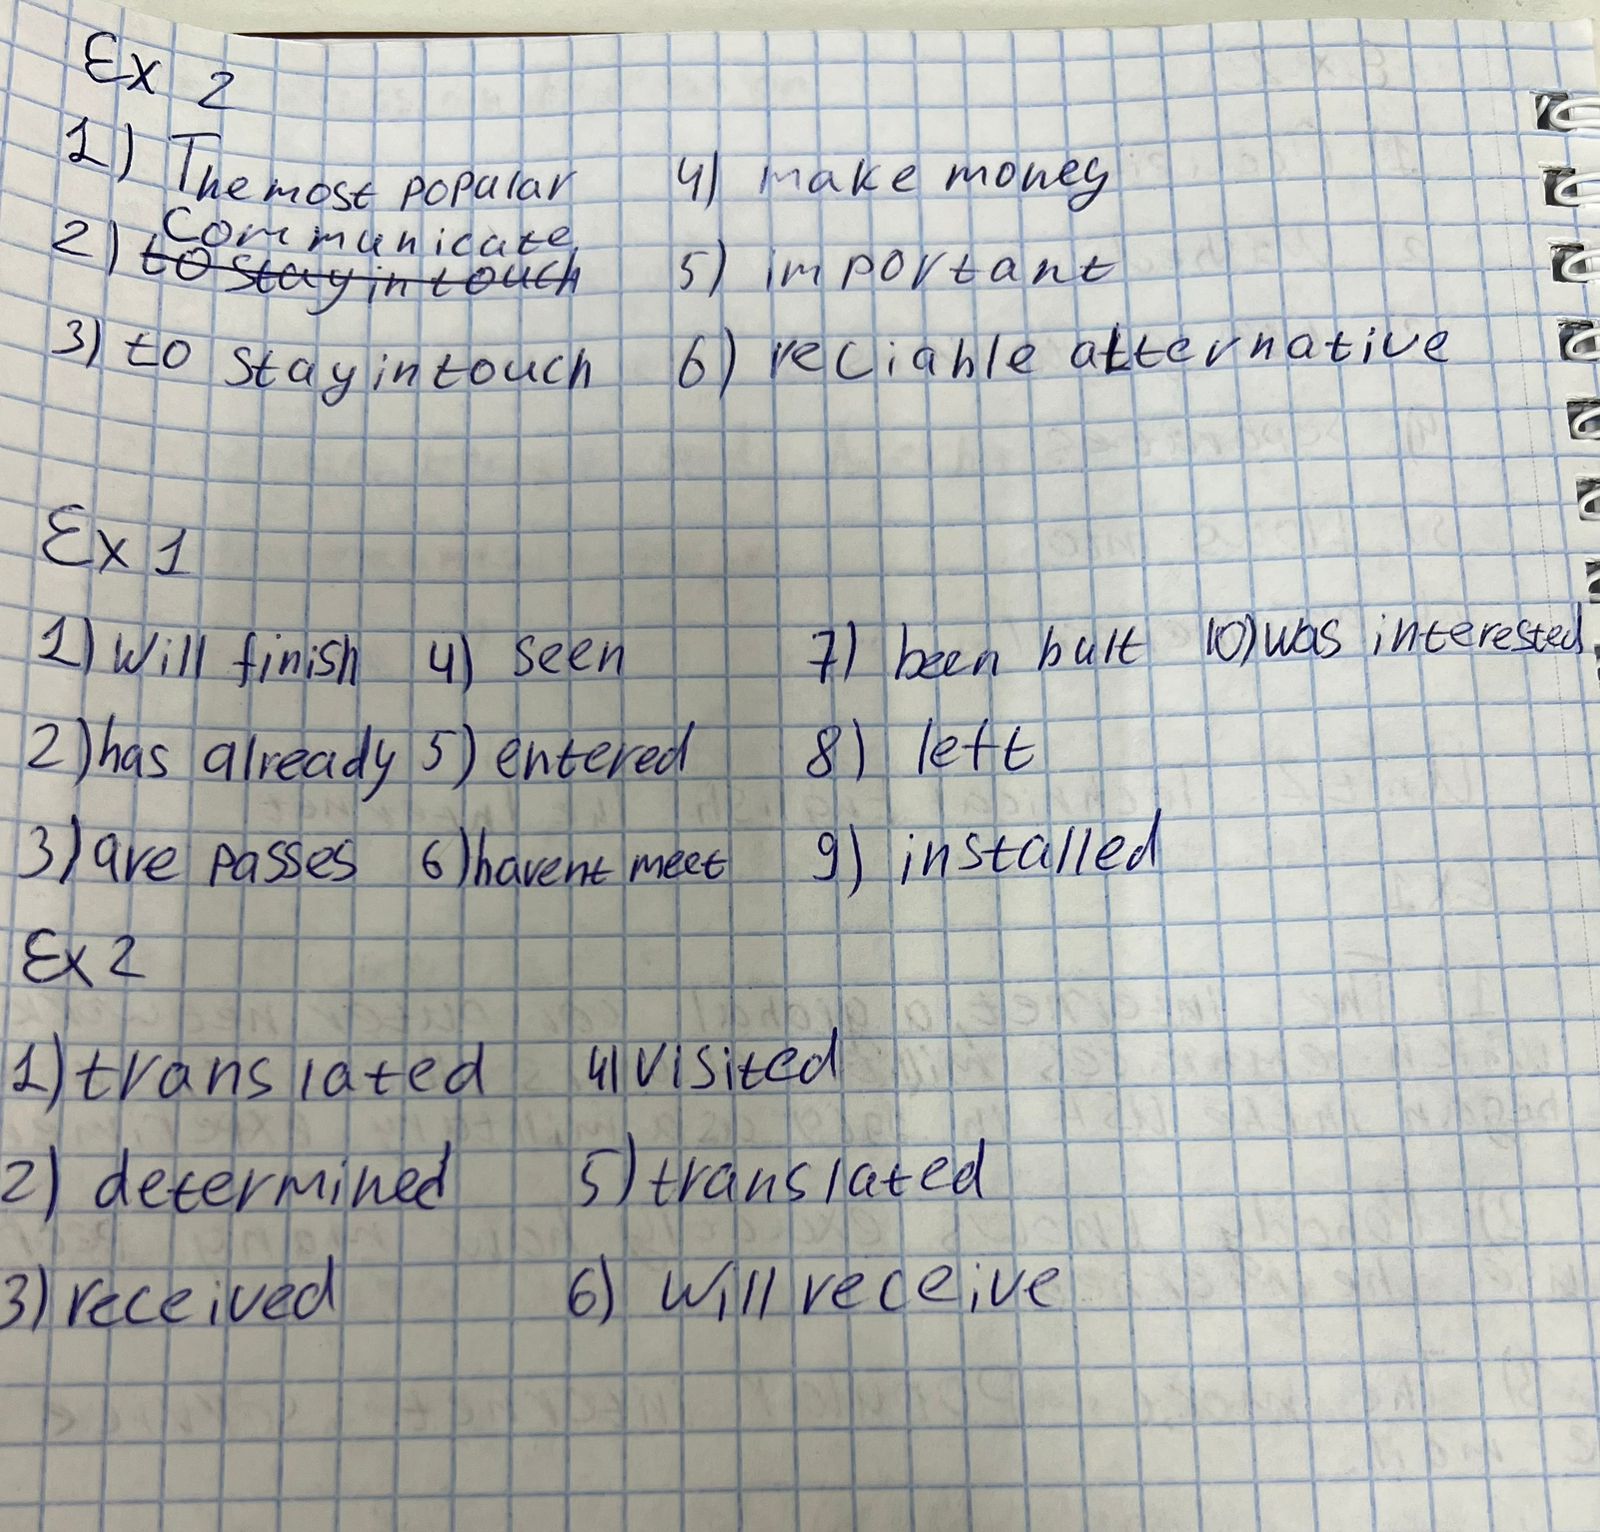 Ex 2
1) The most popular 4) make money
2) Communicate
to stay in touch 5) important
3) to stay in touch 6) reliable alternative
Ex 1
1) Will finish 4) seen 7) been bult 10) was interested
2) has already 5) entered 8) left
3) are passes 6) havent meet 9) installed
Ex 2
1) translated 4) visited
2) determined 5) translated
3) received 6) will receive